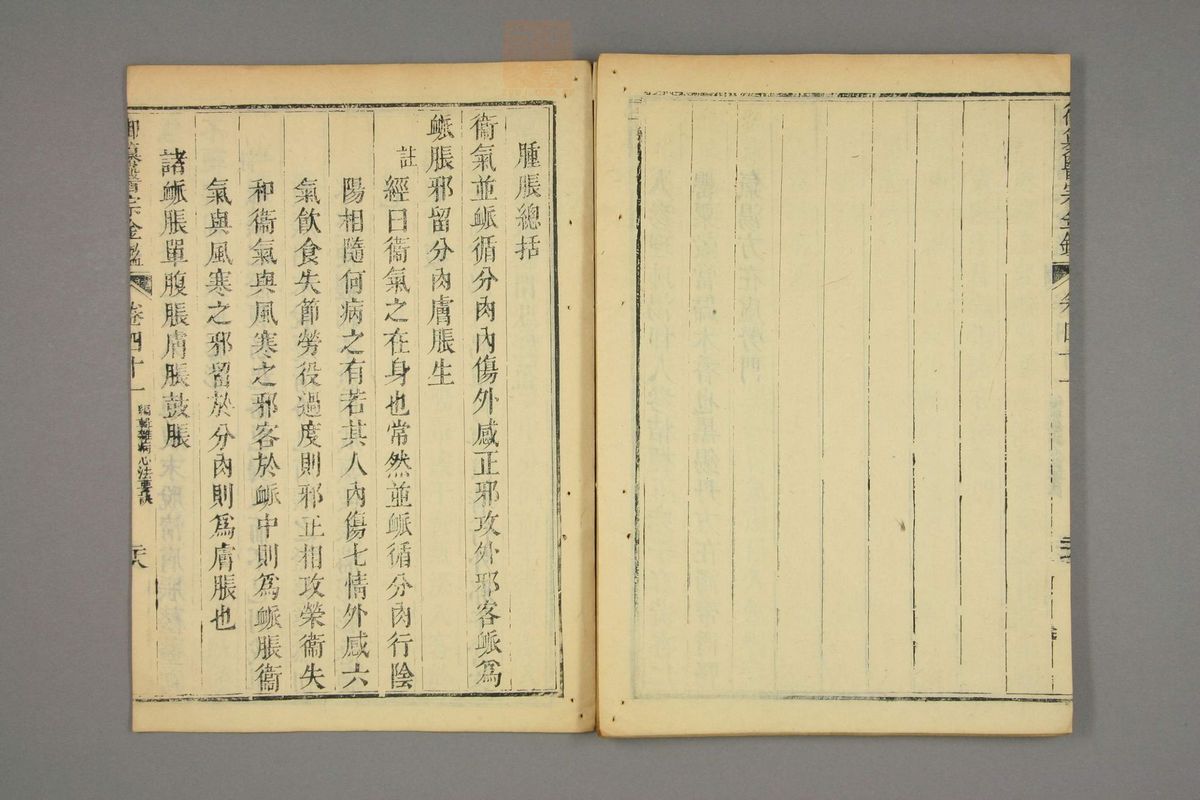 卷四十一
腫脹總括
衞氣並䘑循分肉內傷外感正邪攻外邪客䘑爲
䘑脹邪留分肉膚脹生
註
經曰衞氣之在身也常然並䘑循分肉行陰
陽相隨何病之有若其人內傷七情外感六
氣飲食失節勞役過度則邪正相攻榮衞失
和衞氣與風寒之邪客於䘑中則爲䘑脹衞
氣與風寒之邪留於分肉則爲膚脹也
諸䘑脹單腹脹膚脹鼓脹
御纂醫宗金鑑
卷四十一
編輯雜病心法要訣